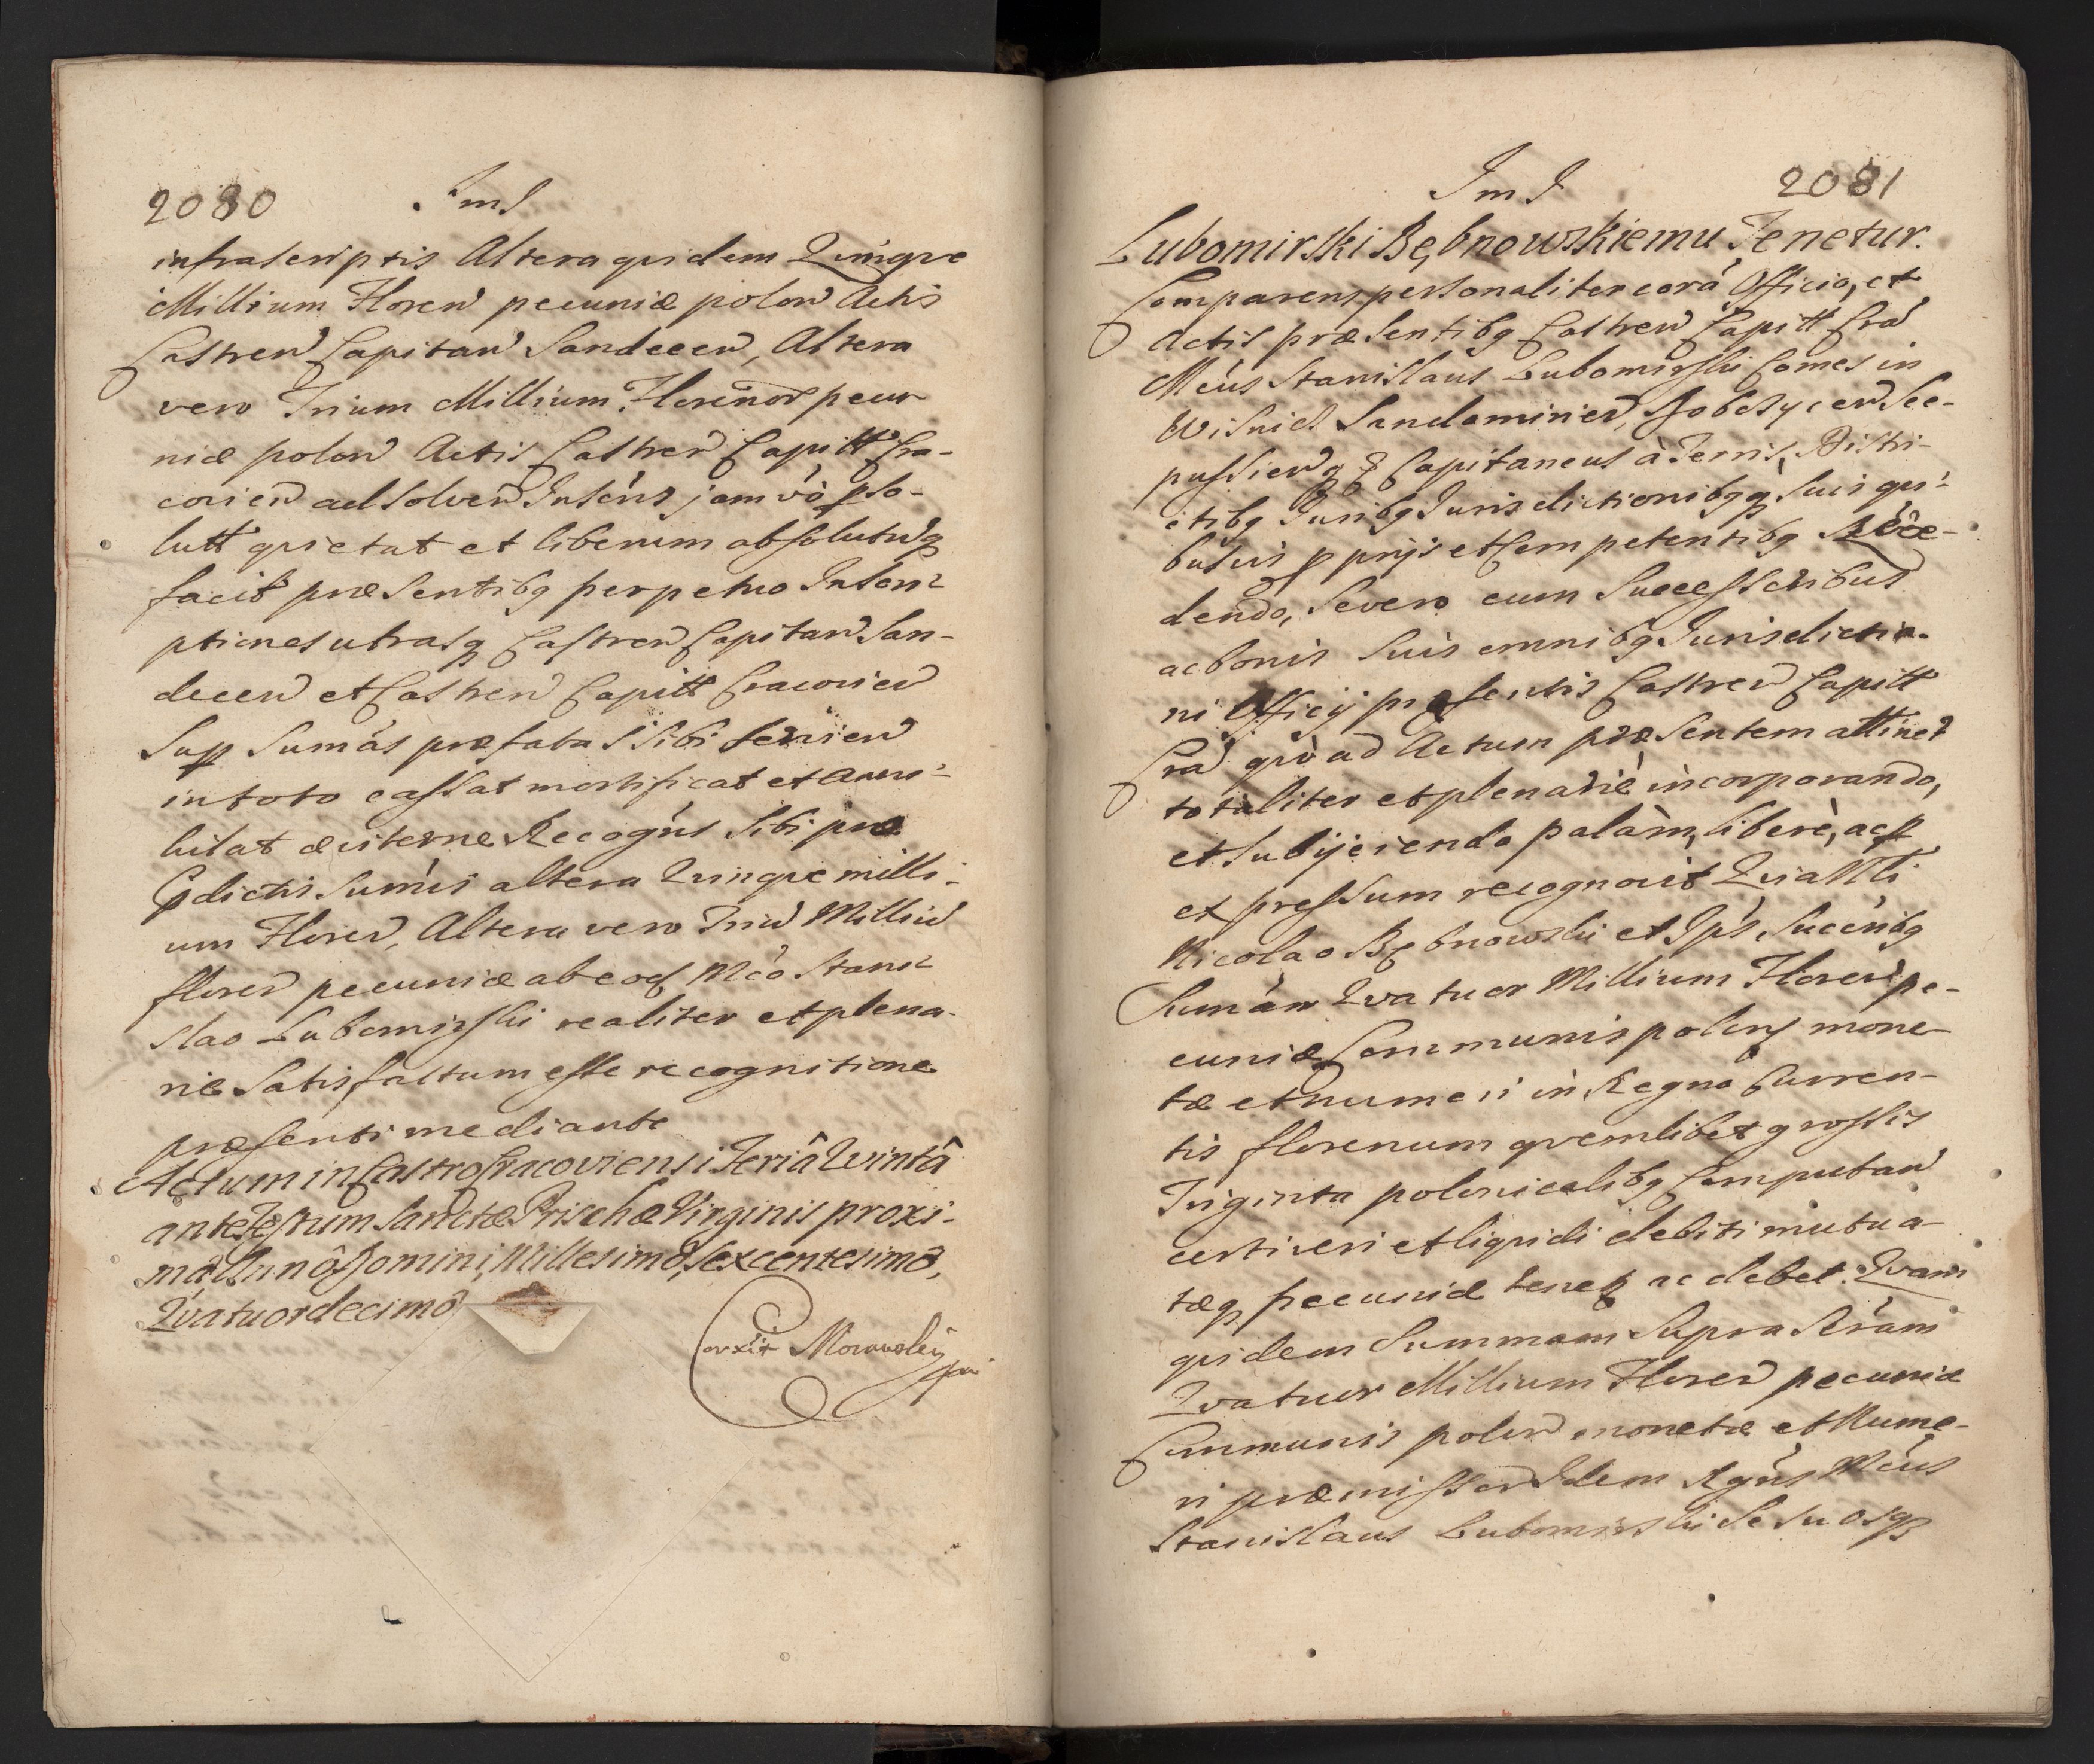 2080 ImJ
infrascriptis Altera quidem Quinque
Millium Floren pecuniæ polon Actis
Castren Capitan Sandecen, Altera
vero Trium Millium Florenor pecu
niæ polon Actis Castren Capitt Cra-
covien ad solven
lutt quietat et liberum absolutumq
facit præsentibq perpetuo Inscri
ptiones utrasq Castren Capitan San-
decen et Castren Capitt Cracovien
Sup Sumás præfatas sibi
in toto cassat mortificat et Anni-
hilat æviterne Recogńs Sibi præ
dictis Sumís altera Quinque milli-
um Floren, Altera vero Trium Millium
floren pecuniæ ab eod Mćo Stani
slao Lubomirski realiter et plena-
riè Satisfactum esse recognitione
præsenti mediante
Actum in Castro Cracoviensi Feriâ Quintâ
ante Festum Sanctæ Prischæ Virginis proxi-
mâ Annô Domini, Millesimô, Sexcentesimô,
Quatuordecimô
Corxit Morawsky

ImJ 2081
Lubomirski Bębnowskiemu Tenetur.
Comparens personaliter corá Officio, et
Actis præsentibq Castren Capitt Cra
Mćus Stanislaus Lubomirski Comes in
Wisnicz Sandomirien, Sce-
pussienq Capitaneus à Terris, Distri-
ctibq Juribq Jurisdictionibqq Suis qui-
busvis pprijs et competentibq Réce-
dendo, Se vero cum Successoribus
ac bonis Suis omnibq Jurisdictio-
ni Officij præsentis Castren Capitt
Cra quò ad Actum præsentem attinet
totaliter et plenariè incorporando,
et Subijciendo palàm, liberè, ac p
expressum recognovit Quia Mli
Nicolao Bębnowski et Ips Succribq
Sumám Quatuor Millium Floren pe-
cuniæ Communis polons mone-
tæ et numeri in Regno Curren-
tis florenum quemlibet grossis
Triginta polonicalibq Computan
certi veri et liquidi debiti mutua-
tæq pecuniæ tenet ac debet. Quam
quidem Summam Supra Rćram
Quatuor Millium Floren pecuniæ
Communis polon monetæ et Nume-
ri præmissor Idem Rgńs Mćus
Stanislaus Lubomirski Se Suosq